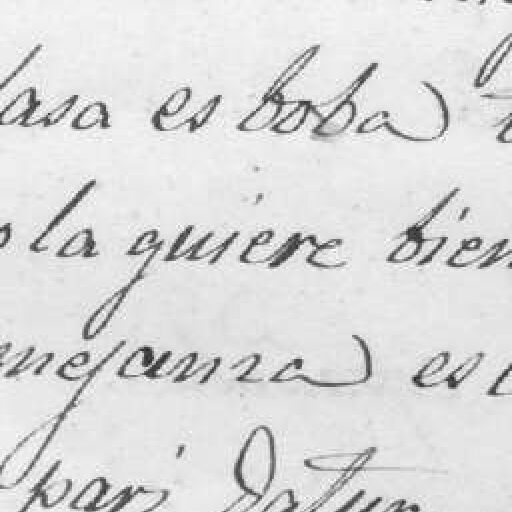 lasa es boba
la quiere bien
mejanza es
pari Datur